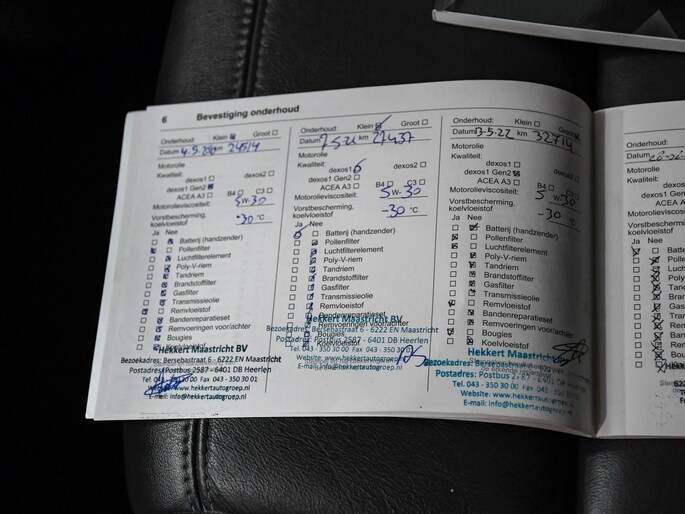 6 Bevestiging onderhoud
Onderhoud: Klein Groot
Datum 4.5.20 km 24514
Motorolie
Kwaliteit:
dexos1 dexos2
dexos1 Gen2
ACEA A3 B4 C3
Motorolieviscositeit: 5W-30
Vorstbescherming,
koelvloeistof -30 °C
Ja Nee
Batterij (handzender)
Pollenfilter
Luchtfilterelement
Poly-V-riem
Tandriem
Brandstoffilter
Gasfilter
Transmissieolie
Remvloeistof
Bandenreparatieset
Remvoeringen voor/achter
Bougies
Koelvloeistof
Hekkert Maastricht BV
Bezoekadres: Bersebastraat 6 - 6222 EN Maastricht
Postadres: Postbus 2587 - 6401 DB Heerlen
Tel. 043 - 350 30 00 Fax 043 - 350 30 01
Website: www.hekkertautogroep.nl
E-mail: info@hekkertautogroep.nl
Onderhoud: Klein Groot
Datum 7.5.21 km 27437
Motorolie
Kwaliteit:
dexos1 dexos2
dexos1 Gen2
ACEA A3 B4 C3
Motorolieviscositeit: 5W-30
Vorstbescherming,
koelvloeistof -30 °C
Ja Nee
Batterij (handzender)
Pollenfilter
Luchtfilterelement
Poly-V-riem
Tandriem
Brandstoffilter
Gasfilter
Transmissieolie
Remvloeistof
Bandenreparatieset
Remvoeringen voor/achter
Bougies
Koelvloeistof
Hekkert Maastricht BV
Bezoekadres: Bersebastraat 6 - 6222 EN Maastricht
Postadres: Postbus 2587 - 6401 DB Heerlen
Tel. 043 - 350 30 00 Fax 043 - 350 30 01
Website: www.hekkertautogroep.nl
E-mail: info@hekkertautogroep.nl
Onderhoud: Klein Groot
Datum 13.5.22 km 32714
Motorolie
Kwaliteit:
dexos1 dexos2
dexos1 Gen2
ACEA A3 B4 C3
Motorolieviscositeit: 5W-30
Vorstbescherming,
koelvloeistof -30 °C
Ja Nee
Batterij (handzender)
Pollenfilter
Luchtfilterelement
Poly-V-riem
Tandriem
Brandstoffilter
Gasfilter
Transmissieolie
Remvloeistof
Bandenreparatieset
Remvoeringen voor/achter
Bougies
Koelvloeistof
Hekkert Maastricht
Bezoekadres: Bersebastraat
Postadres: Postbus 2587 - 6401
Tel. 043 - 350 30 00 Fax 043 - 350 30 01
Website: www.hekkertautogroep.nl
E-mail: info@hekkertautogroep.nl
Onderhoud:
Datum
Motorolie
Kwaliteit:
Motorolie
Vorstbe
koelvloe
Ja Nee